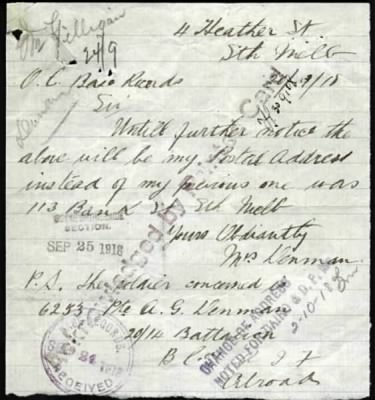 4 Heather St.
Sth Melb
24/9
O.C. Base Records
Sir
Untill further notice the
above will be my Postal Address
instead of my previous one was
113 Bank St Sth Melb
SECTION.
SEP 25 1918
Yours Obdiantly
Mrs Denman.
P.S. the soldier concerned is
6253 Pte A. G. Denman
20/14 Battalion
A I F
Abroad
CHANGE OF ADDRESS
NOTED FOR CARDS &
2-10-18
RECORDS.
RECEIVED